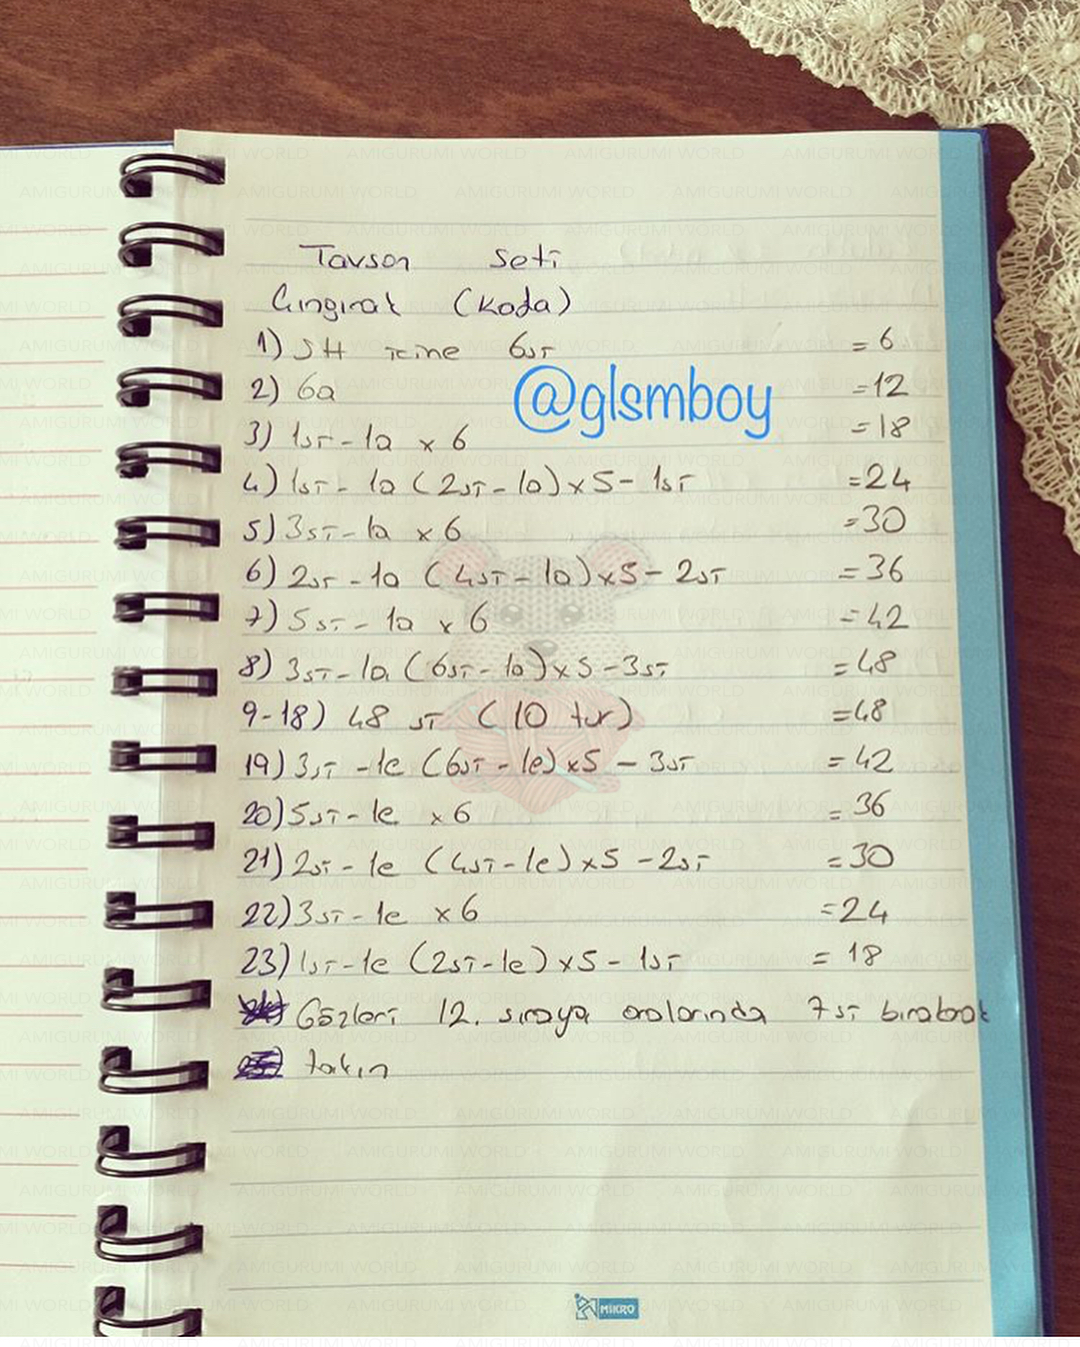 Tavşan Seti
Çıngırak (Kafa)
1) SH içine 6sı = 6
2) 6a =12
@glsmboy
3) 1sı - 1a x 6 = 18
4) 1sı - 1a (2sı - 1a) x 5 - 1sı =24
5) 3sı - 1a x 6 =30
6) 2sı - 1a (4sı - 1a) x 5 - 2sı =36
7) 5sı - 1a x 6 =42
8) 3sı - 1a (6sı - 1a) x 5 - 3sı =48
9-18) 48 sı (10 tur) =48
19) 3sı - 1e (6sı - 1e) x 5 - 3sı = 42
20) 5sı - 1e x 6 = 36
21) 2sı - 1e (4sı - 1e) x 5 - 2sı =30
22) 3sı - 1e x 6 =24
23) 1sı - 1e (2sı - 1e) x 5 - 1sı = 18
Gözleri 12. sıraya aralarında 7sı bırakarak
takın
MIKRO
AMIGURUMI WORLD